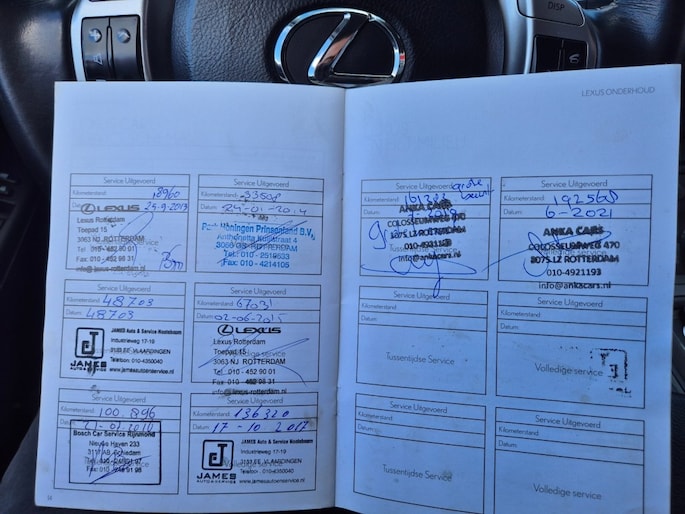 DISP
LEXUS ONDERHOUD
Service Uitgevoerd
Kilometerstand: 18960
Datum: 25-9-2013
LEXUS
Lexus Rotterdam
Toepad 15
3063 NJ ROTTERDAM
Tel. 010 - 452 90 01
Fax 010 - 452 98 31
info@lexus-rotterdam.nl
Service Uitgevoerd
Kilometerstand: 33508
Datum: 24-01-2014
Prinsenland B.V.
Tel.: 010 - 2519633
Fax: 010 - 4214105
Service Uitgevoerd
Kilometerstand: 48703
Datum: 48703
JAMES Auto & Service Nooteboom
Industrieweg 17-19
VLAARDINGEN
Telefoon 010-4350040
www.jamesautoenservice.nl
JAMES
AUTO & SERVICE
Service Uitgevoerd
Kilometerstand: 67031
Datum: 02-06-2015
LEXUS
Lexus Rotterdam
Toepad 15
3063 NJ ROTTERDAM
Tel. 010 - 452 90 01
Fax 010 - 452 98 31
info@lexus-rotterdam.nl
Service Uitgevoerd
Kilometerstand: 100.896
Bosch Car Service Rijnmond
Nieuwe Haven 233
3117 AB Schiedam
Service Uitgevoerd
Kilometerstand: 136320
Datum: 17-10-2017
JAMES Auto & Service Nooteboom
Industrieweg 17-19
VLAARDINGEN
Telefoon 010-4350040
www.jamesautoenservice.nl
JAMES
AUTO & SERVICE
Volledige service
Service Uitgevoerd
Kilometerstand: 161233
grote beurt
Datum:
ANKA CARS
COLOSSEUMWEG 470
3075 LZ ROTTERDAM
010-4921193
info@ankacars.nl
Service Uitgevoerd
Kilometerstand: 192568
Datum: 6-2021
ANKA CARS
COLOSSEUMWEG 470
3075 LZ ROTTERDAM
010-4921193
info@ankacars.nl
Service Uitgevoerd
Kilometerstand:
Datum:
Tussentijdse Service
Service Uitgevoerd
Kilometerstand:
Datum:
Volledige service
Service Uitgevoerd
Kilometerstand:
Datum:
Tussentijdse Service
Service Uitgevoerd
Kilometerstand:
Datum:
Volledige service